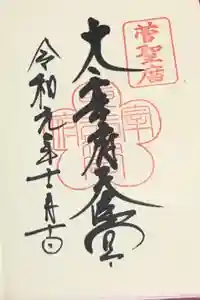 菅聖廟
太宰府天満宮
令和元年十一月十一日